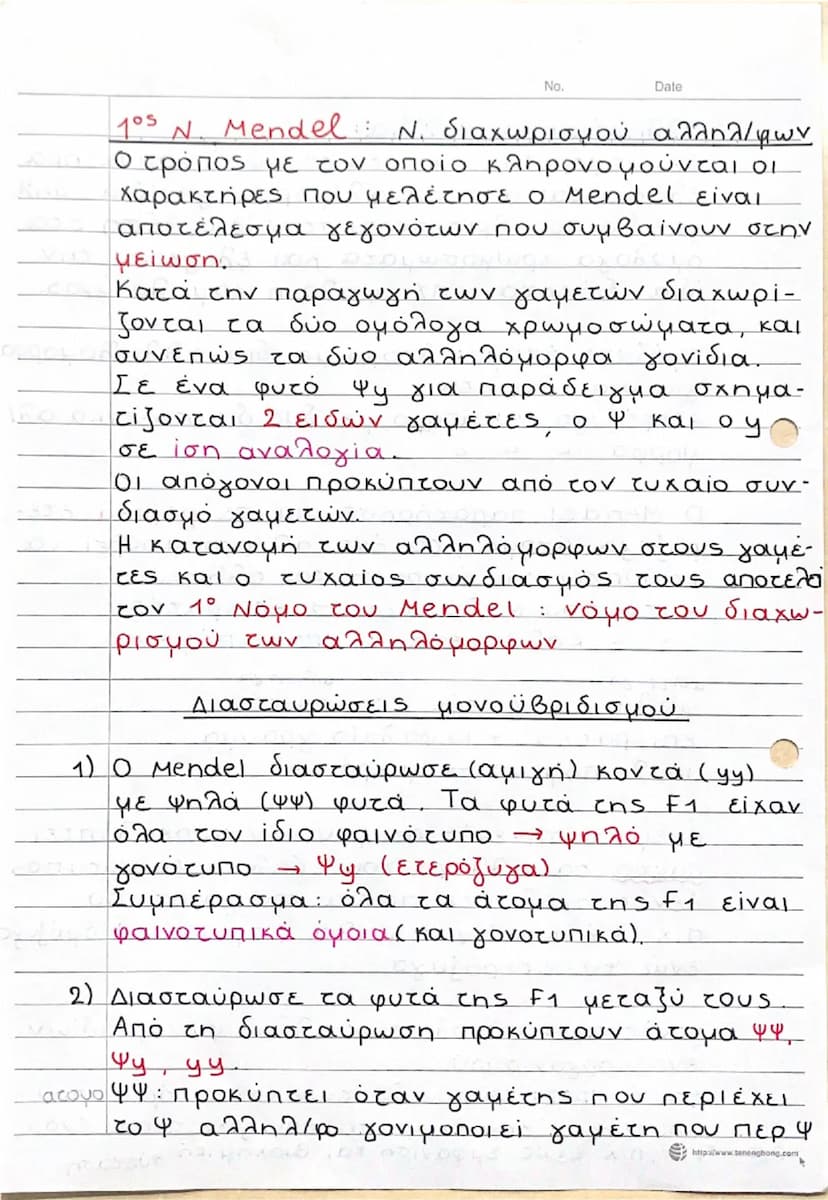 No. Date
1ος Ν. Mendel : Ν. διαχωρισμού αλληλ/φων
Ο τρόπος με τον οποίο κληρονομούνται οι
χαρακτήρες που μελέτησε ο Mendel είναι
αποτέλεσμα γεγονότων που συμβαίνουν στην
μείωση.
Κατά την παραγωγή των γαμετών διαχωρί-
ζονται τα δύο ομόλογα χρωμοσώματα, και
συνεπώς τα δύο αλληλόμορφα γονίδια.
Σε ένα φυτό Ψψ για παράδειγμα σχημα-
τίζονται 2 ειδών γαμέτες, ο Ψ και ο ψ
σε ίση αναλογία.
Οι απόγονοι προκύπτουν από τον τυχαίο συν-
διασμό γαμετών.
Η κατανομή των αλληλόμορφων στους γαμέ-
τες και ο τυχαίος συνδιασμός τους αποτελεί
τον 1º Νόμο του Mendel : νόμο του διαχω-
ρισμού των αλληλόμορφων
Διασταυρώσεις μονοϋβριδισμού
1) Ο Mendel διασταύρωσε (αμιγή) κοντά (ψψ)
με ψηλά (ΨΨ) φυτά. Τα φυτά της F1 είχαν
όλα τον ίδιο φαινότυπο → ψηλό με
γονότυπο → Ψψ (ετερόζυγα)
Συμπέρασμα: όλα τα άτομα της F1 είναι
φαινοτυπικά όμοια (και γονοτυπικά).
2) Διασταύρωσε τα φυτά της F1 μεταξύ τους.
Από τη διασταύρωση προκύπτουν άτομα ΨΨ,
Ψψ, ψψ.
ατομο ΨΨ: προκύπτει όταν γαμέτης που περιέχει
το Ψ αλληλ/φο γονιμοποιεί γαμέτη που περ Ψ
http://www.tenenghong.com